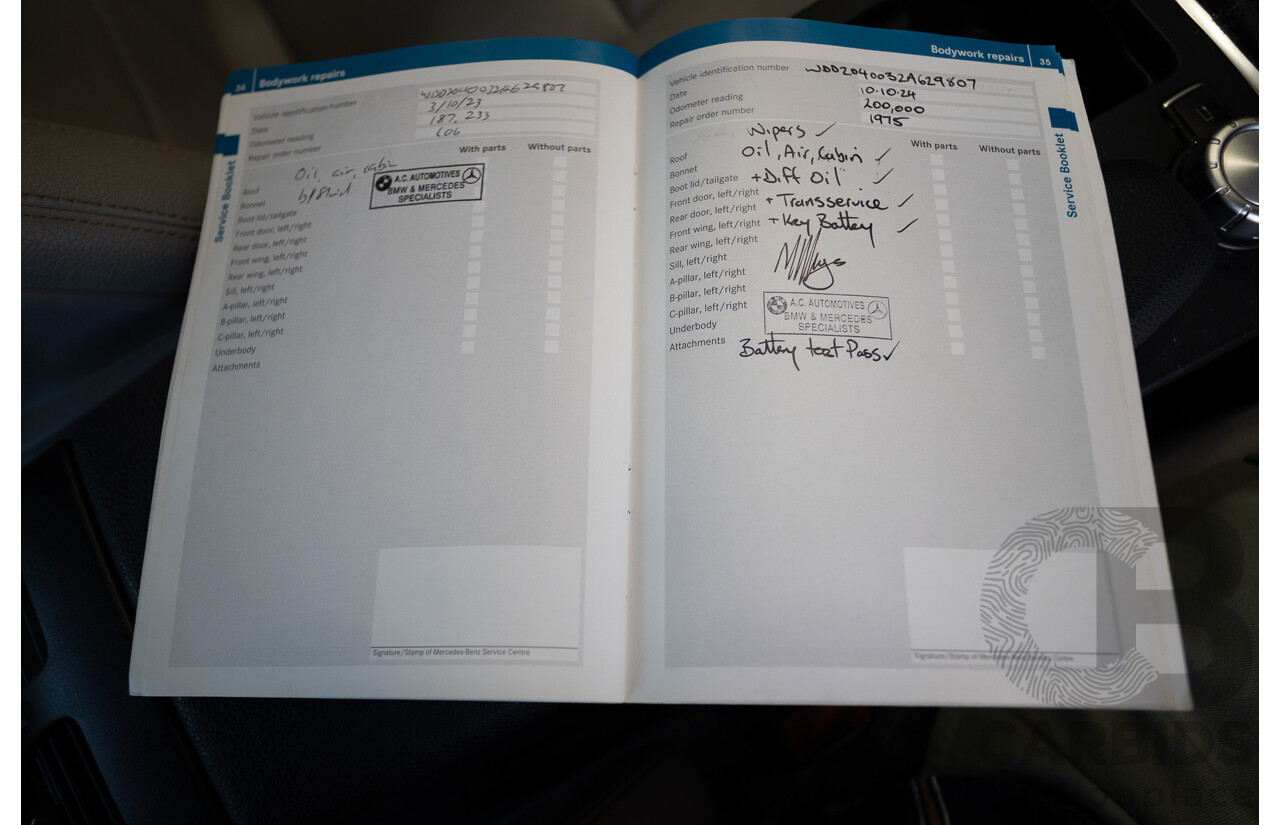 34 Bodywork repairs
Vehicle identification number WDD2040032A629807
Date 3/10/23
Odometer reading 187,233
Repair order number 606
With parts Without parts
Oil, air, cabin
b/fluid
A.C. AUTOMOTIVES
BMW & MERCEDES
SPECIALISTS
Roof
Bonnet
Boot lid/tailgate
Front door, left/right
Rear door, left/right
Front wing, left/right
Rear wing, left/right
Sill, left/right
A-pillar, left/right
B-pillar, left/right
C-pillar, left/right
Underbody
Attachments
Signature/Stamp of Mercedes-Benz Service Centre
Service Booklet
Bodywork repairs 35
Vehicle identification number WDD2040032A629807
Date 10.10.24
Odometer reading 200,000
Repair order number 1975
With parts Without parts
Wipers ✓
Oil, Air, Cabin ✓
+Diff Oil ✓
+ Transservice ✓
+ Key Battery ✓
A.C. AUTOMOTIVES
BMW & MERCEDES
SPECIALISTS
Battery test Pass ✓
Roof
Bonnet
Boot lid/tailgate
Front door, left/right
Rear door, left/right
Front wing, left/right
Rear wing, left/right
Sill, left/right
A-pillar, left/right
B-pillar, left/right
C-pillar, left/right
Underbody
Attachments
Signature/Stamp of Mercedes-Benz Service Centre
Service Booklet
CARBIDS